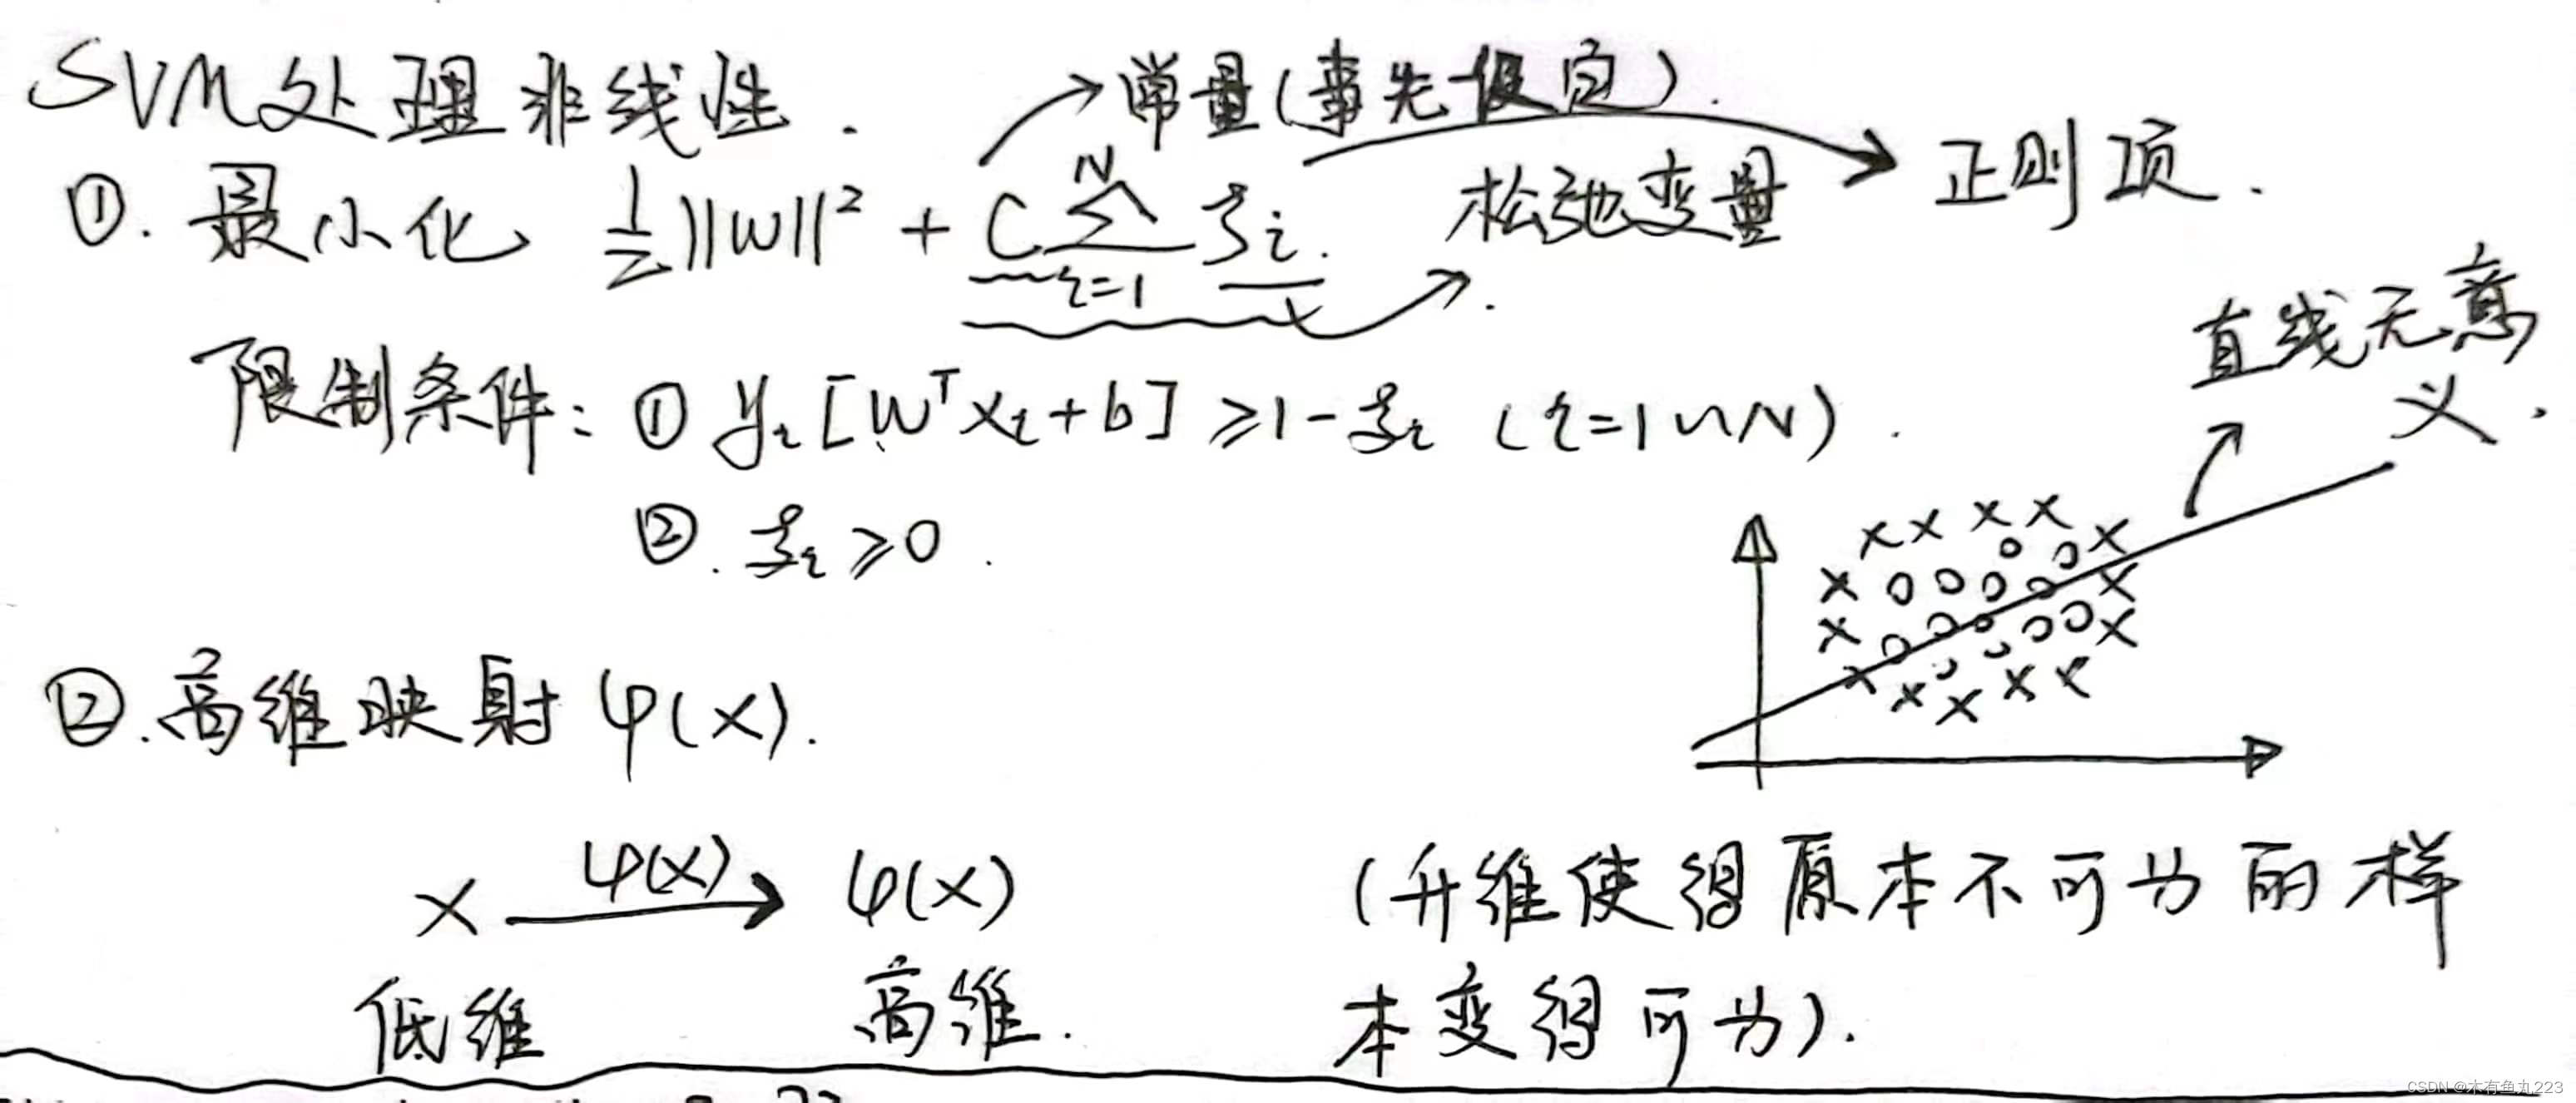 SVM处理非线性.
常量(事先设定).
①. 最小化 1/2||W||² + C∑_{i=1}^{N} ξi.
松弛变量
正则项.
限制条件: ① yi[WᵀXi+b]≥1-ξi (i=1~N).
②. ξi≥0.
直线无意
义.
②.高维映射 φ(x).
x φ(x) φ(x)
低维 高维.
(升维使得原本不可分的样
本变得可分).
CSDN @木有鱼丸223